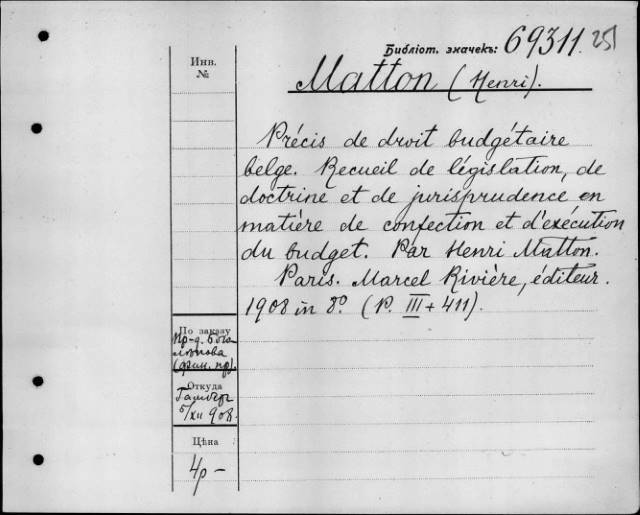 Библіот. значекъ: 69311 251
Инв.
№
Matton (Henri).
Précis de droit budgétaire
belge. Recueil de législation, de
doctrine et de jurisprudence en
matière de confection et d'exécution
du budget. Par Henri Matton.
Paris. Marcel Rivière, éditeur.
1908 in 8º. (P. III + 411).
По заказу
Пр-д.
(фин. пр).
Откуда
5/XII 908.
Цѣна
4р -